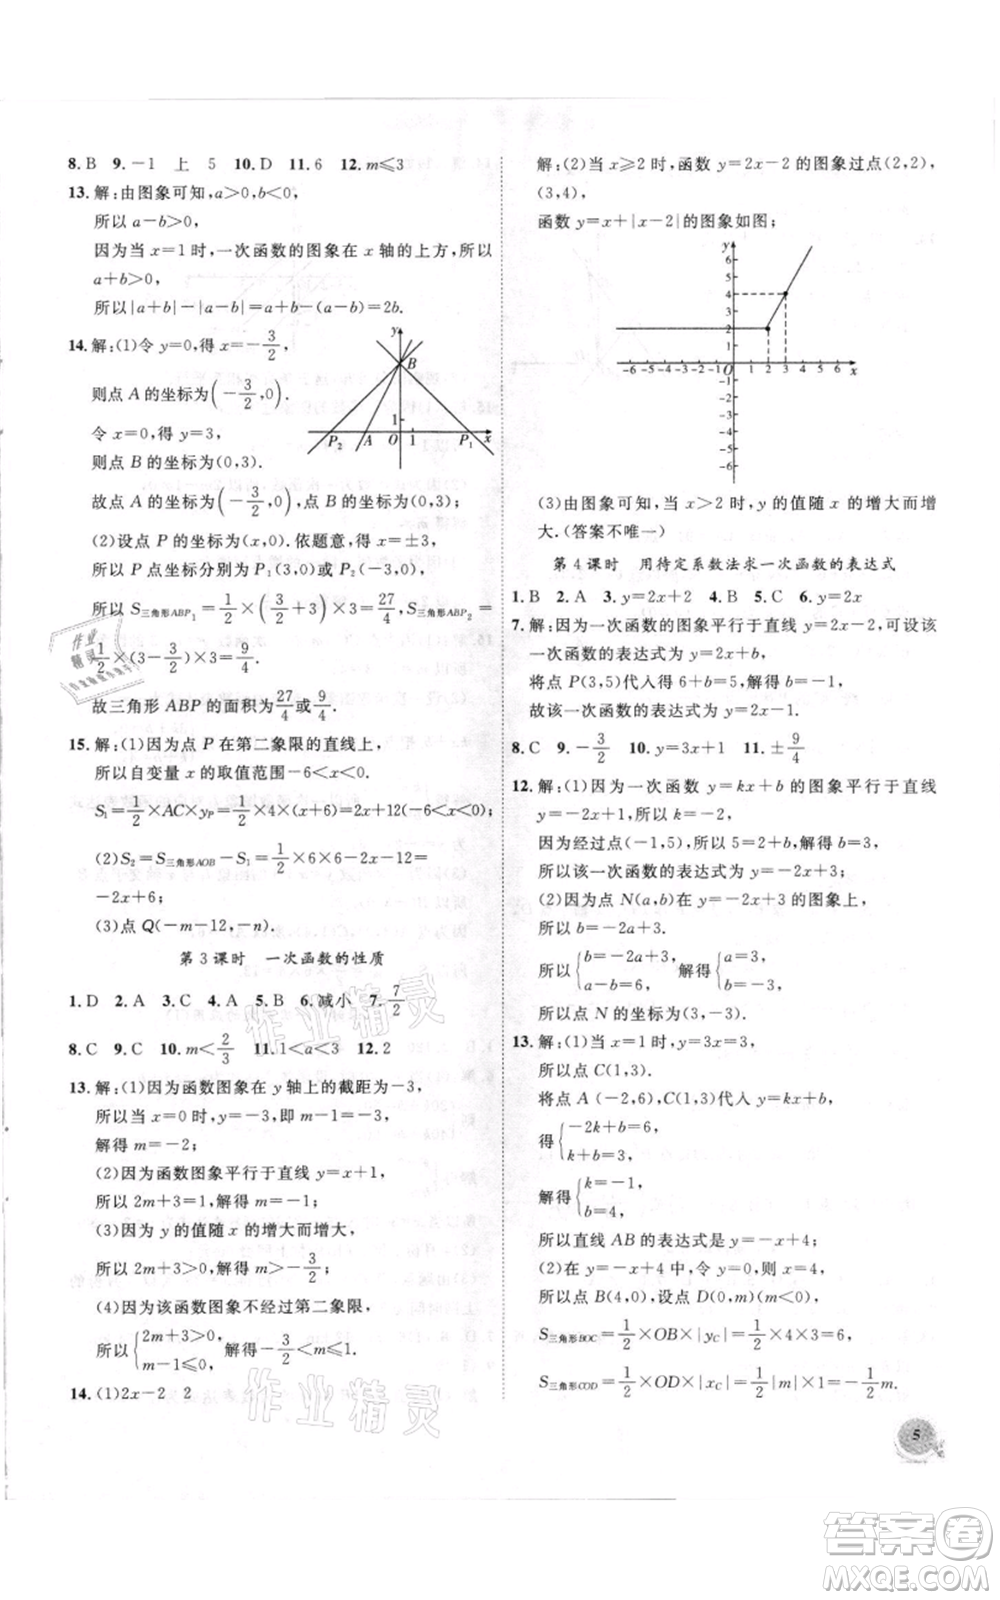 8. B 9. －1 上 5 10. D 11. 6 12. m⩽3
13. 解:由图象可知,a＞0,b＜0,
所以 a－b＞0,
因为当 x＝1 时,一次函数的图象在 x 轴的上方,所以
a＋b＞0,
所以|a＋b|－|a－b|＝a＋b－(a－b)＝2b.
14. 解:(1)令 y＝0,得 x＝－3/2,
则点 A 的坐标为(－3/2,0).
令 x＝0,得 y＝3,
则点 B 的坐标为(0,3).
故点 A 的坐标为(－3/2,0),点 B 的坐标为(0,3).
y
B
1
P₂ A O 1 P₁ x
(2)设点 P 的坐标为(x,0).依题意,得 x＝±3,
所以 P 点坐标分别为 P₁(3,0)或 P₂(－3,0).
所以 S三角形ABP₁＝1/2×(3/2＋3)×3＝27/4,S三角形ABP₂＝
1/2×(3－3/2)×3＝9/4.
故三角形 ABP 的面积为27/4或9/4.
15. 解:(1)因为点 P 在第二象限的直线上,
所以自变量 x 的取值范围－6＜x＜0.
S₁＝1/2×AC×y_P＝1/2×4×(x＋6)＝2x＋12(－6＜x＜0);
(2)S₂＝S三角形AOB－S₁＝1/2×6×6－2x－12＝
－2x＋6;
(3)点 Q(－m－12,－n).
第 3 课时 一次函数的性质
1. D 2. A 3. C 4. A 5. B 6. 减小 7. 7/2
8. C 9. C 10. m＜2/3 11. 1＜a＜3 12. 2
13. 解:(1)因为函数图象在 y 轴上的截距为－3,
所以当 x＝0 时,y＝－3,即 m－1＝－3,
解得 m＝－2;
(2)因为函数图象平行于直线 y＝x＋1,
所以 2m＋3＝1,解得 m＝－1;
(3)因为 y 的值随 x 的增大而增大,
所以 2m＋3＞0,解得 m＞－3/2;
(4)因为该函数图象不经过第二象限,
所以{2m＋3＞0, m－1⩽0, 解得－3/2＜m⩽1.
14. (1)2x－2 2
解:(2)当 x⩾2 时,函数 y＝2x－2 的图象过点(2,2),
(3,4),
函数 y＝x＋|x－2|的图象如图;
y
6
5
4
3
2
1
-6 -5 -4 -3 -2 -1 O 1 2 3 4 5 6 x
-1
-2
-3
-4
-5
-6
(3)由图象可知,当 x＞2 时,y 的值随 x 的增大而增
大.(答案不唯一)
第 4 课时 用待定系数法求一次函数的表达式
1. B 2. A 3. y＝2x＋2 4. B 5. C 6. y＝2x
7. 解:因为一次函数的图象平行于直线 y＝2x－2,可设该
一次函数的表达式为 y＝2x＋b,
将点 P(3,5)代入得 6＋b＝5,解得 b＝－1,
故该一次函数的表达式为 y＝2x－1.
8. C 9. －3/2 10. y＝3x＋1 11. ±9/4
12. 解:(1)因为一次函数 y＝kx＋b 的图象平行于直线
y＝－2x＋1,所以 k＝－2,
因为经过点(－1,5),所以 5＝2＋b,解得 b＝3,
所以该一次函数的表达式为 y＝－2x＋3.
(2)因为点 N(a,b)在一次函数的图象上,
所以 b＝－2a＋3,
所以{b＝－2a＋3, a－b＝6, 解得{a＝3, b＝－3,
所以点 N 的坐标为(3,－3).
13. 解:(1)当 x＝1 时,y＝3x＝3,
所以点 C(1,3).
将点 A(－2,6),C(1,3)代入 y＝kx＋b,
得{－2k＋b＝6, k＋b＝3,
解得{k＝－1, b＝4,
所以直线 AB 的表达式为 y＝－x＋4;
(2)在 y＝－x＋4 中,令 y＝0,则 x＝4,
所以点 B(4,0),设点 D(0,m)(m＜0),
S三角形BOC＝1/2×OB×|y_C|＝1/2×4×3＝6,
S三角形COD＝1/2×OD×|x_C|＝1/2|m|×1＝－1/2m.
5
作业精灵
作业精灵
作业精灵
答案卷
MXQE.COM